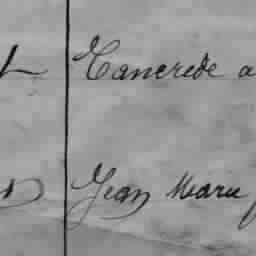 Tancrede a
Jean Marie